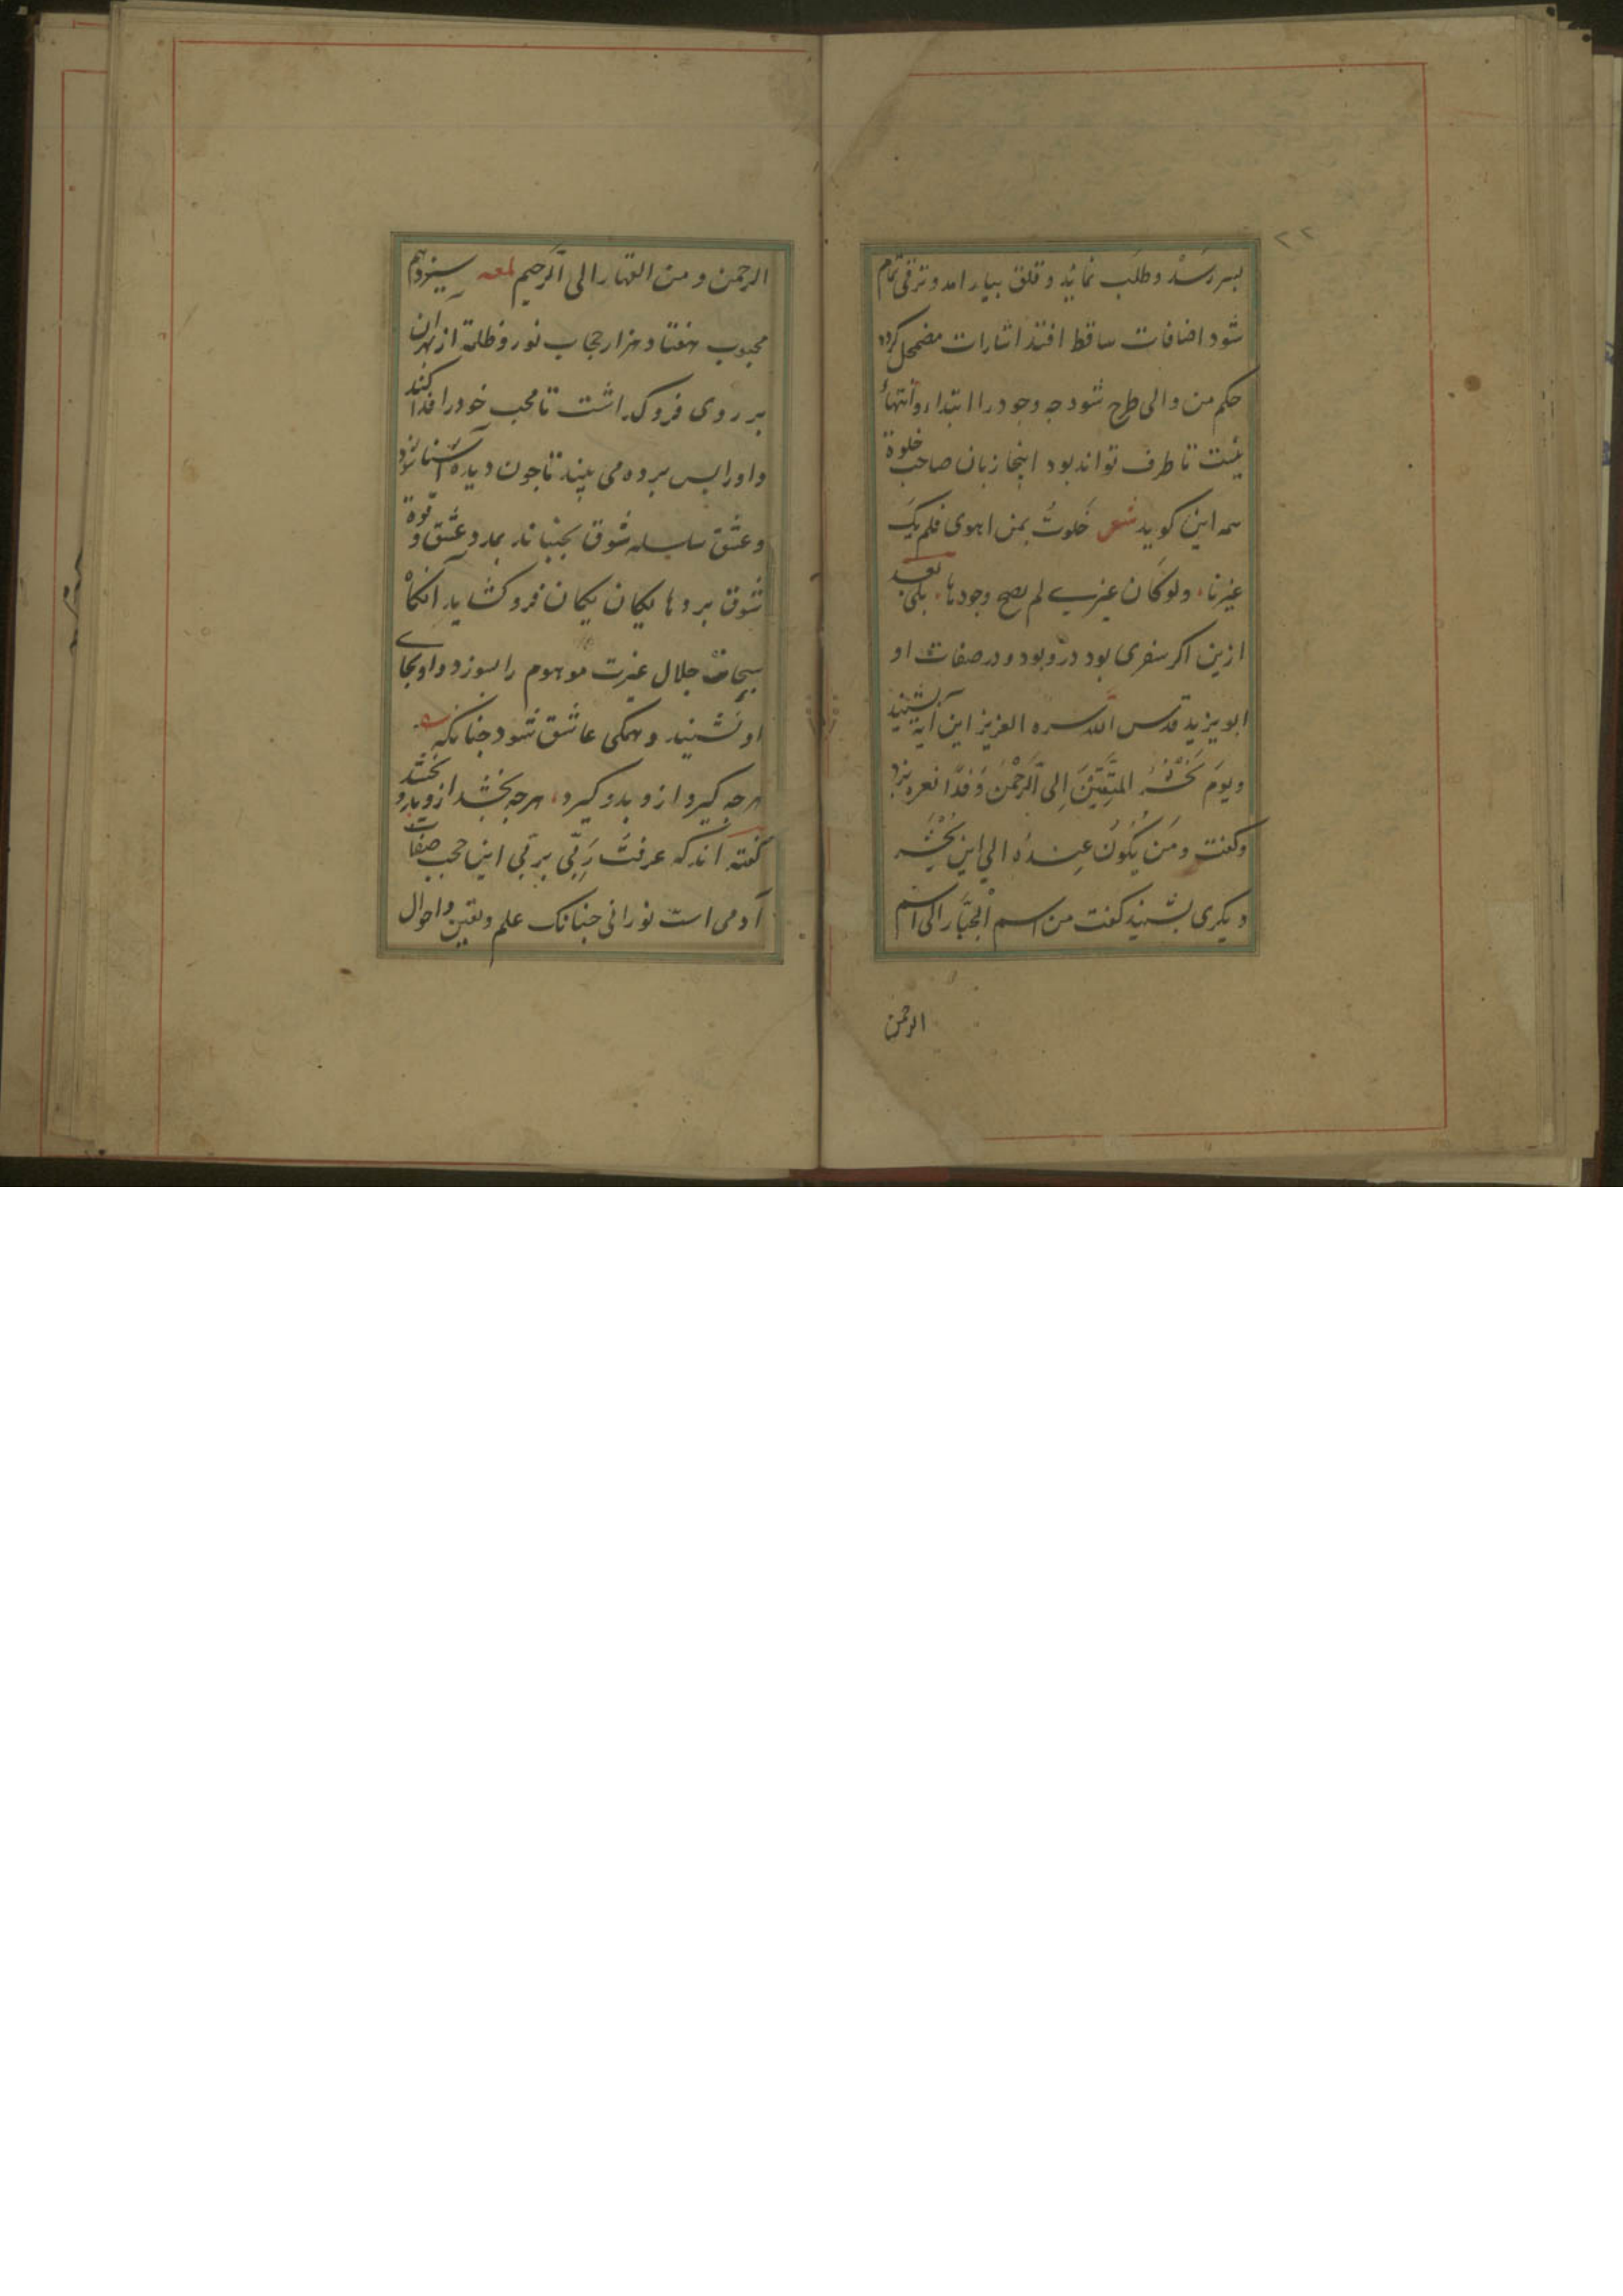 ۲۲
بسر رسد و طلب نماید و قلق بیارامد و ترقی تمام
شود اضافات ساقط افتد اشارات مضمحل کردد
حکم من والی طرح شود جه وجود را ابتداء وانتهاء
نیست تا طرف تواند بود اینجا زبان صاحب خلوة
همه این کوید شعر خلوتُ بمن اهوی فلم یک
غیرنا ولو کان غیری لم یصح وجودها بلی بعد
ازین اکر سفری بود درو بود و در صفات او
ابو یزید قدس الله سره العزیز این آیه بشنید
ویوم نحشر المتقین الی الرحمن وفدا نعره بزد
وکفت ومن یکون عنده الی این یحشر
دیکری بشنید کفت من اسم الجبار الی اسم
الرحمن
الرحمن و من القهار الی الرحیم لمعه سیزدهم
محبوب هفتاد هزار حجاب نور و ظلمة از بهر آن
بر روی فروکذاشت تا محب خود را فدا کند
و اورا پس برده می بیند تا جون دیده آشنا شود
و عشق سلسله شوق بجنباند بمدد عشق و قوة
شوق بردها یکان یکان فروکشاید آنکاه
سبحات جلال غیرت موهوم را بسوزد و او بجای
او نشیند و همکی عاشق شود جنانکه
هرجه کیرد ازو بدو کیرد هرجه بخشد ازو بدو بخشد
کفته اند که عرفتُ ربّی بربّی این حجب صفات
آدمی است نورانی جنانک علم و یقین و احوال